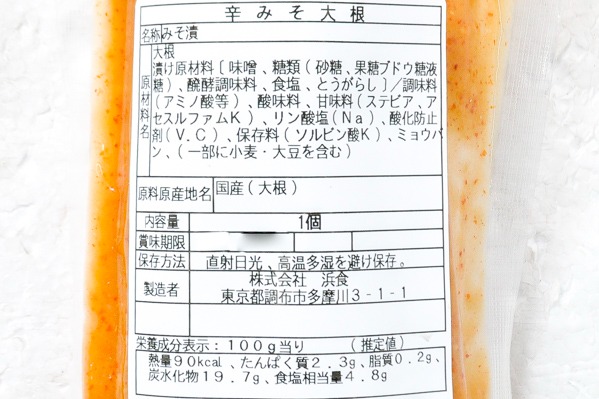 辛みそ大根
名称 みそ漬
原材料名 大根
漬け原材料〔味噌、糖類(砂糖、果糖ブドウ糖液
糖)、醗酵調味料、食塩、とうがらし〕/調味料
(アミノ酸等)、酸味料、甘味料(ステビア、ア
セスルファムK)、リン酸塩(Na)、酸化防止
剤(V.C)、保存料(ソルビン酸K)、ミョウバ
ン、(一部に小麦・大豆を含む)
原料原産地名 国産(大根)
内容量 1個
賞味期限
保存方法 直射日光、高温多湿を避け保存。
製造者 株式会社 浜食
東京都調布市多摩川3-1-1
栄養成分表示:100g当り (推定値)
熱量90kcal、たんぱく質2.3g、脂質0.2g、
炭水化物19.7g、食塩相当量4.8g